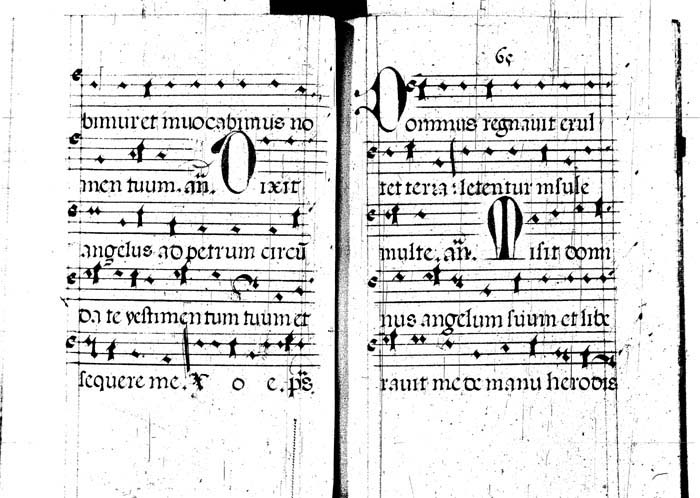 bimur et inuocabimus no
men tuum. añ. Dixit
angelus ad petrum circū
da te vestimentum tuum et
sequere me. o e. ps.
Dominus regnauit exul
tet terra: letentur insule
multe. añ. Misit domi
nus angelum suum et libe
rauit me de manu herodis